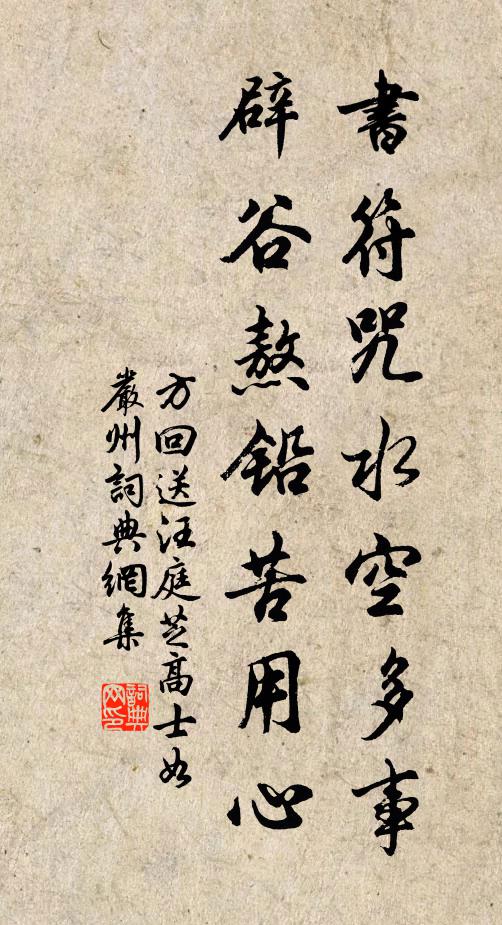 書符咒水空多事
辟谷熬鉛苦用心
方回送汪庭芝高士如
嚴州詞典網集
詞典网印